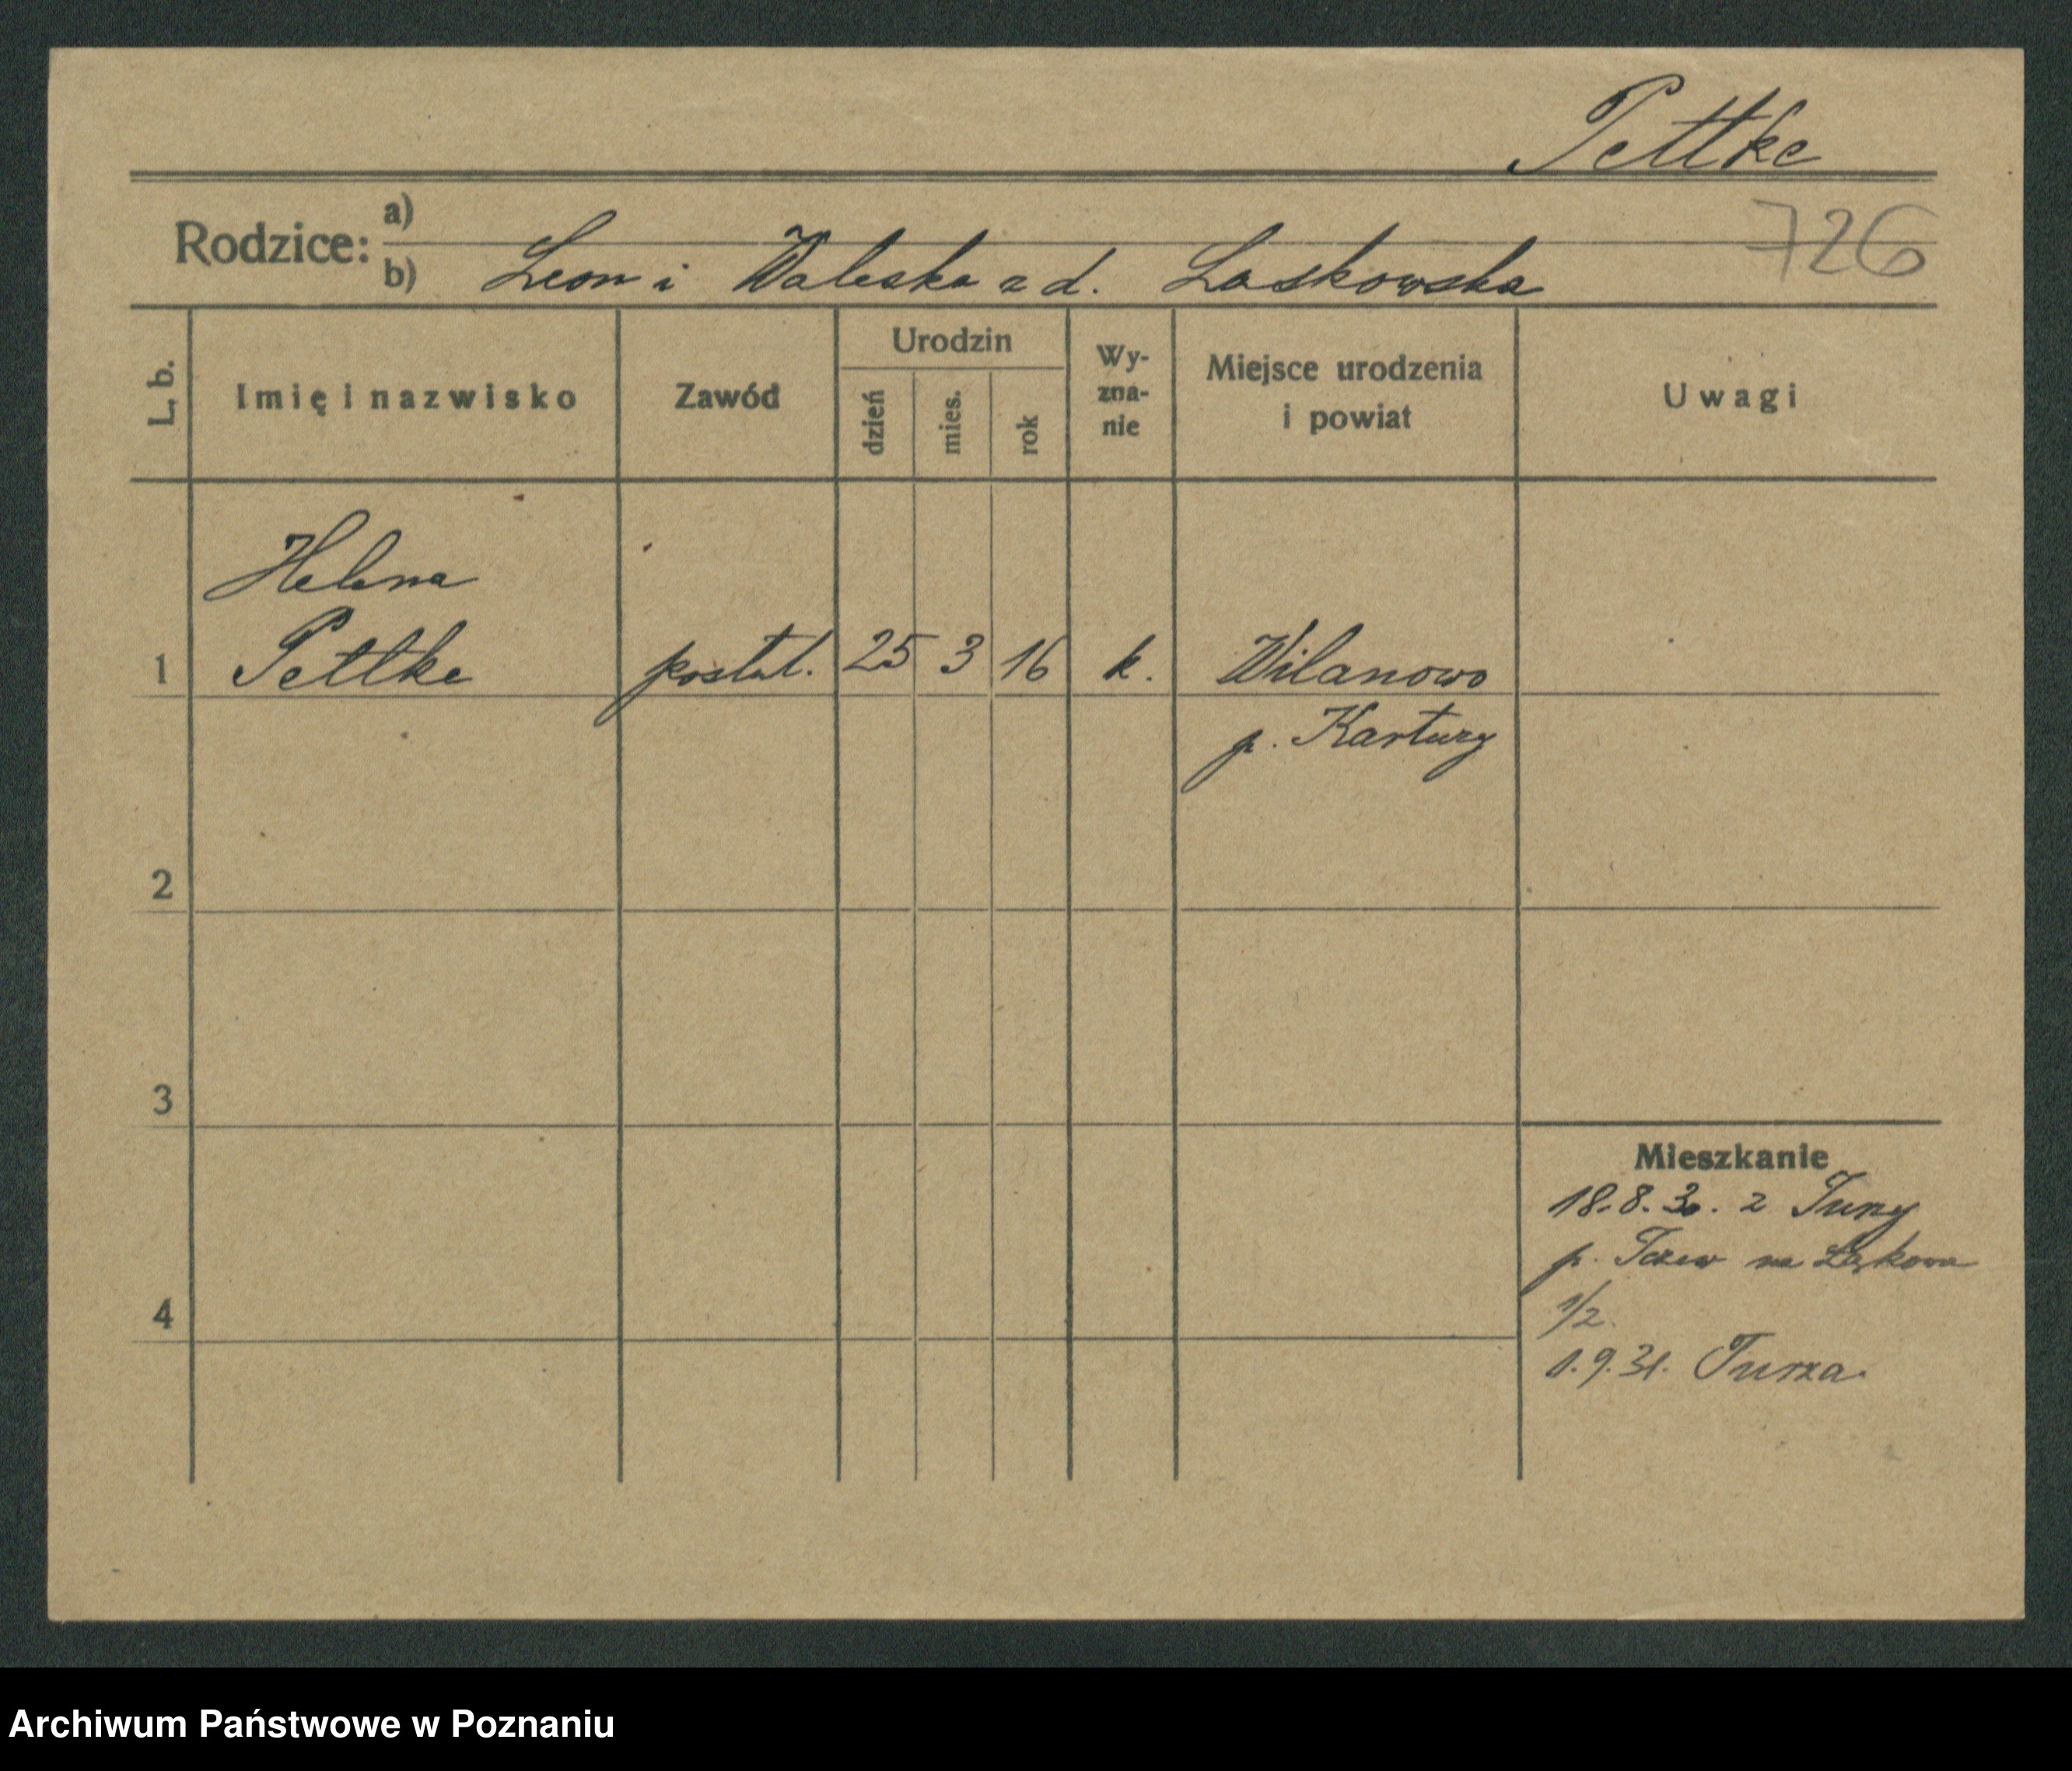 Pettke
Rodzice:
a)
b) Leon i Waleska z d. Laskowska
726
L. b.
Imię i nazwisko
Zawód
Urodzin
dzień
mies.
rok
Wy-
zna-
nie
Miejsce urodzenia
i powiat
Uwagi
Helena
1 Pettke postul. 25 3 16 k. Wilanowo
p. Kartuzy
2
3
4
Mieszkanie
18.8.30. z Turzy
p. Tczew na Łąkowa
1/2.
1.9.31. Turza.
Archiwum Państwowe w Poznaniu